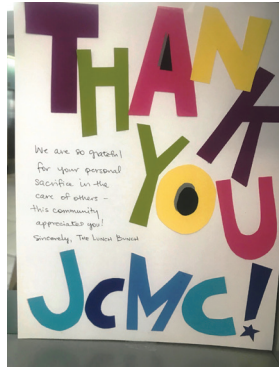 THANK
YOU
We are so grateful
for your personal
sacrifice in the
care of others -
this community
appreciates you!
Sincerely, THE LUNCH BUNCH
JCMC!